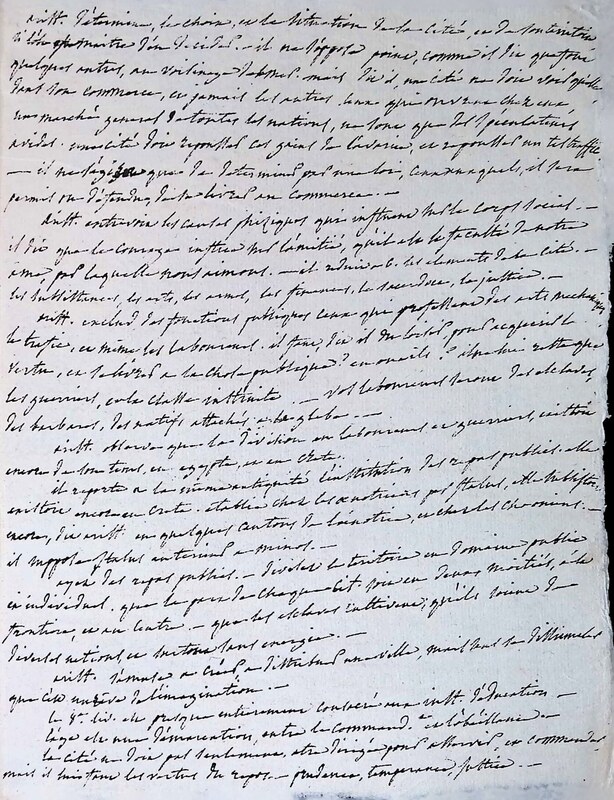 arist. détermine, le choix, et la situation de la cité, et de son territoire
il ne s'oppose point, comme il dit que font
quelques autres, au voisinage de la mer. mais, dit-il, une cité ne doit voir qu'elle
dans son commerce, et jamais les autres. ceux qui ouvrent chez eux
un marché general de toutes les nations, ne sont que des speculateurs
avides. une cité doit repousser ces gains de l'avarice, et repousser un tel traffic
— il ne s'agit que de determiner par une loi, ceux auxquels, il sera
permis ou défendu, de se livrer au commerce. —
arist. entrevoit les causes phisiques qui influent sur le corps social. —
il dit que le courage influe sur l'amitié, qu'il est la faculté de notre
ame par laquelle nous aimons. — il réduit à 6. les elements de la cité. —
les subsistances, les arts, les armes, les finances, le sacerdoce, la justice. —
arist. exclud, des fonctions publiques ceux qui professent des arts mechaniques
le trafic, et même les laboureurs. il faut, dit-il du loisir, pour acquerir la
vertu, et se livrer à la chose publique. il ne lui reste que
les guerriers, et la classe — les laboureurs seront des esclaves,
des barbares, des natifs attachés à la glebe. —
arist. observe que la division en laboureurs et guerriers, existoit
encore de son tems, en egypte, et en crete.
il reporte à la même antiquité l'institution des repas publics. elle
existoit encore en crete. etablie chez les œnotriens, par italus, elle subsistoit
encore, dit arist. en quelques cantons de l'œnotrie, et chez les chaoniens. —
il suppose italus anterieur à minos. —
ayez des repas publics. — divisez le territoire en domaine public
et individuel. que la part de chaque cit. soit en deux moitiés, à la
frontiere, et au centre — que les esclaves cultivent; qu'ils soient de
diverses nations, et surtout sans energie. —
arist. s'amuse à créer, à distribuer une ville, mais sans se dissimuler
que c'est un rêve de l'imagination. —
le 8e. liv. est presque entierement consacré par arist. à l'éducation —
l'âge est une démarcation, entre le command.t et l'obéissance —
la cité ne doit pas seulement, etre dirigée pour asservir, et commander
mais il lui faut les vertus du repos. — prudence, temperance, justice. —